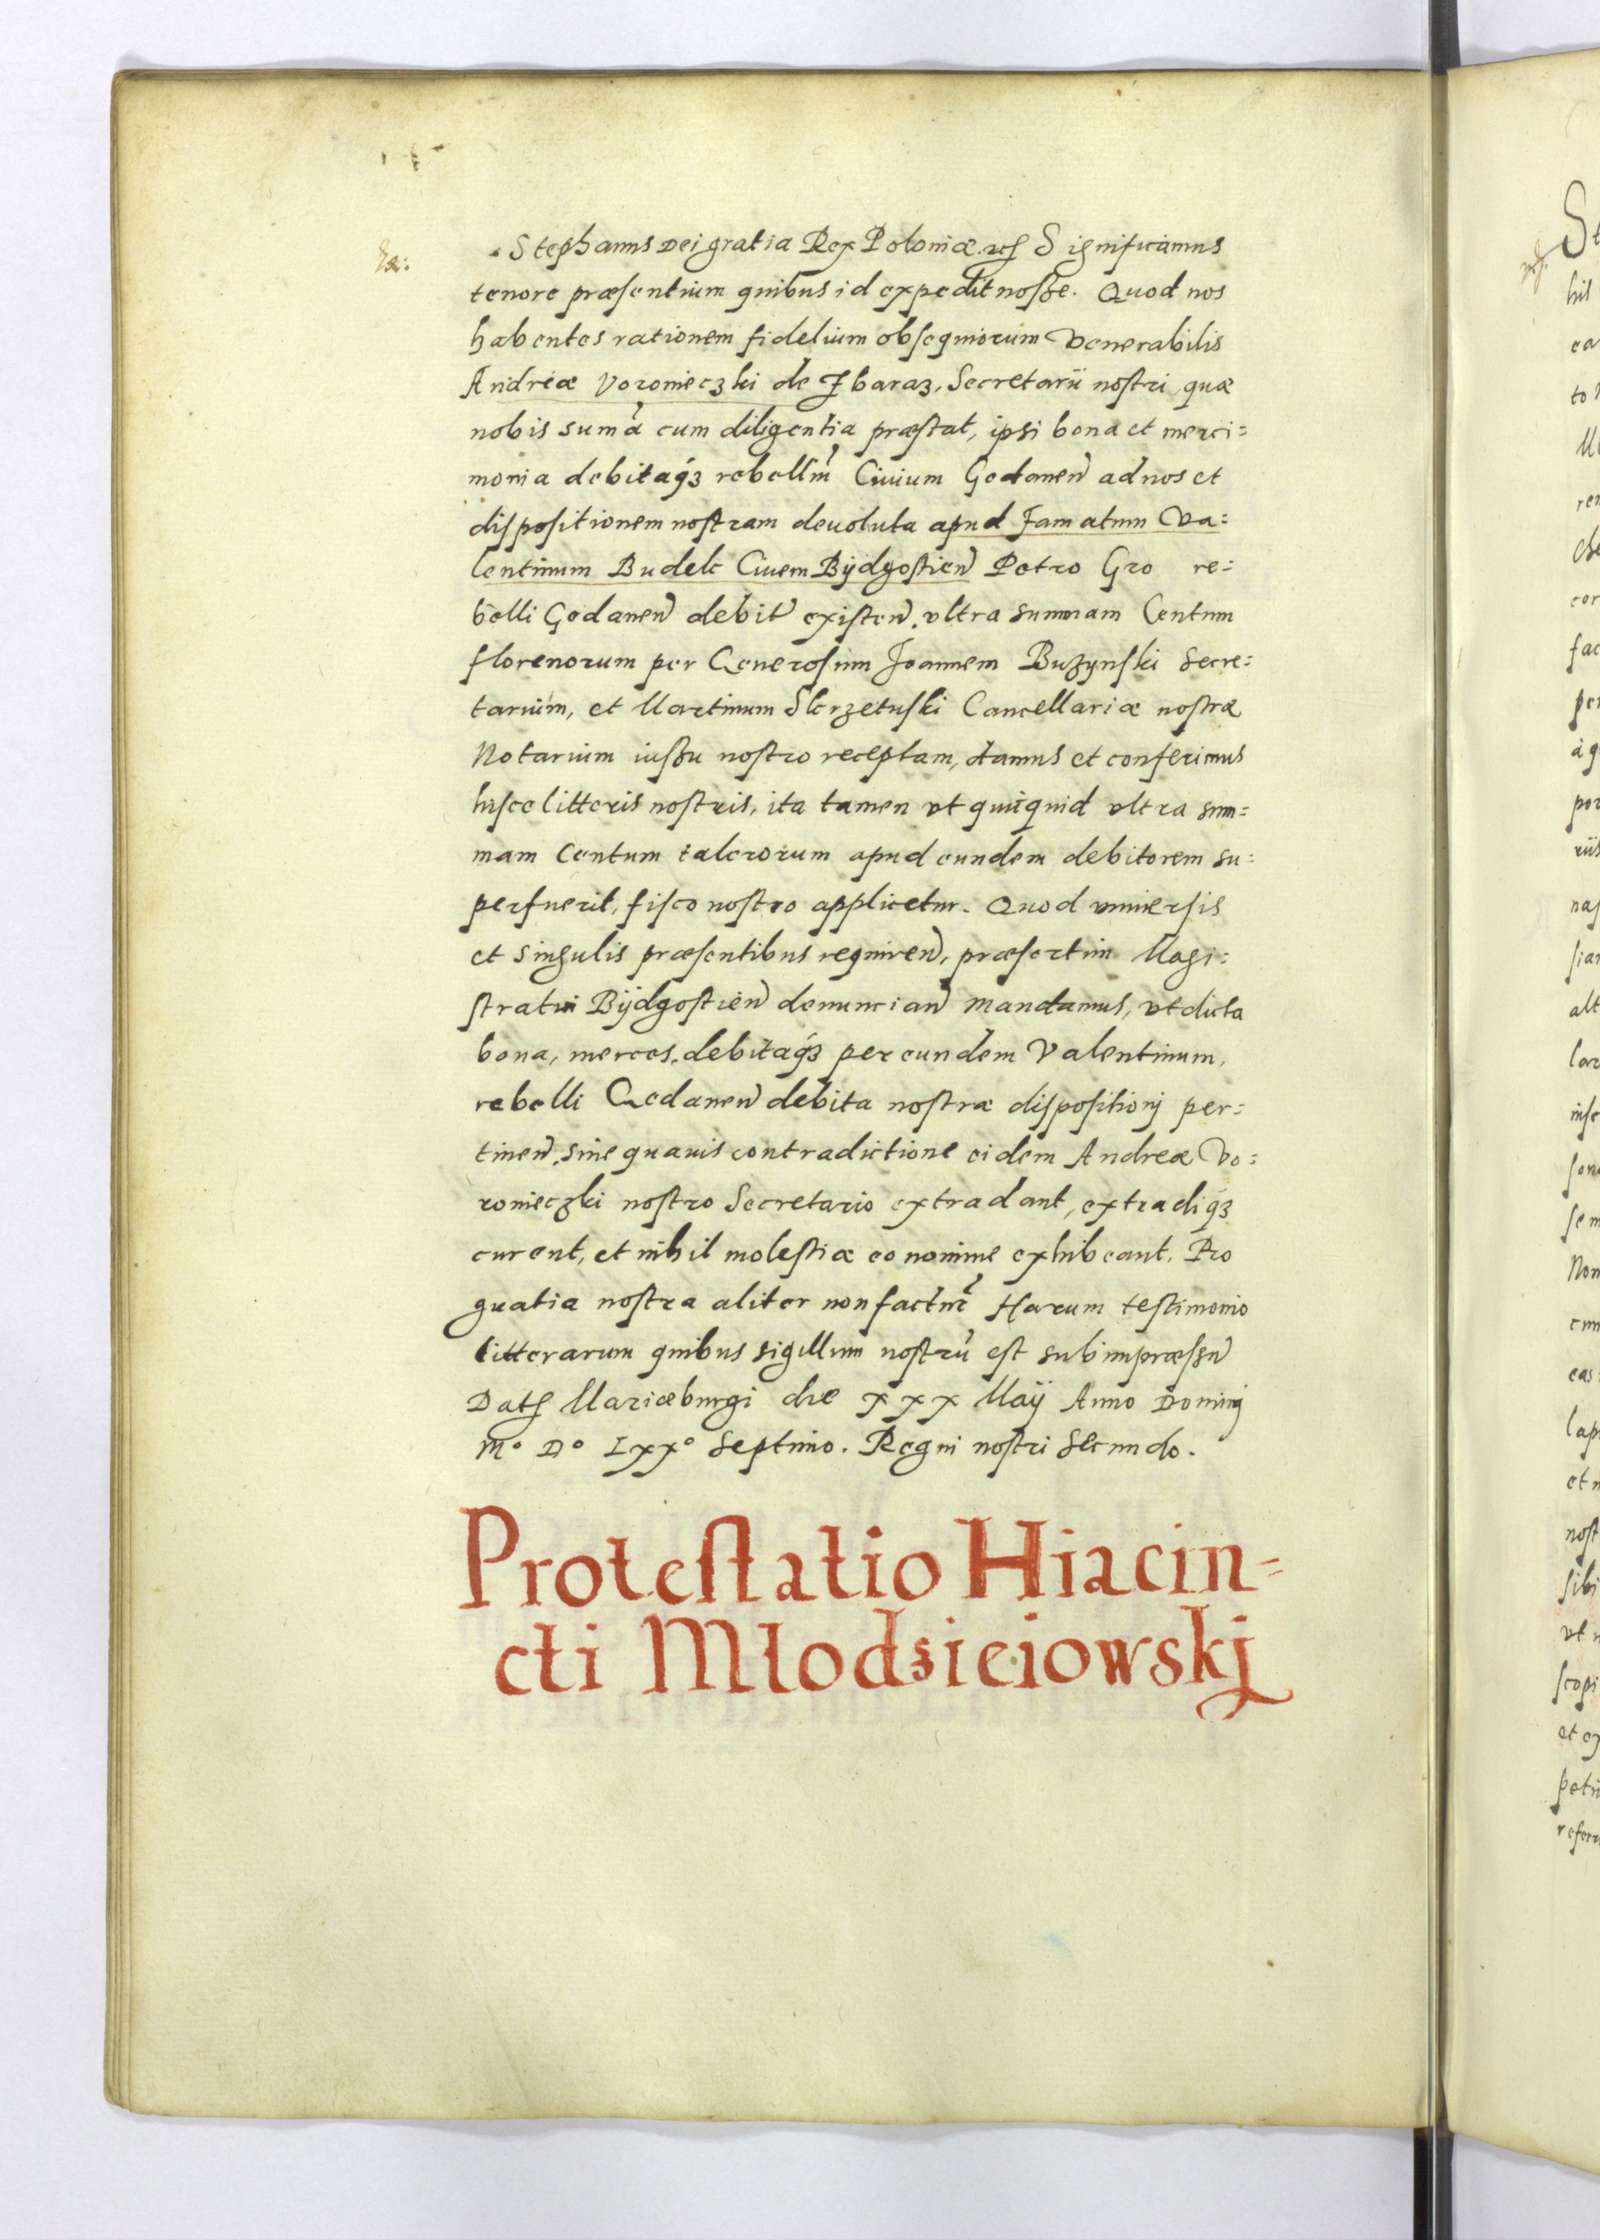 Stephanus Dei gratia Rex Poloniæ etc Significamus
tenore præsentium quibus id expedit nosse. Quod nos
habentes rationem fidelium obsequiorum Venerabilis
Andreæ Voronieczki de Zbaraz, Secretarii nostri, quæ
nobis sumã cum diligentia præstat, ipsi bona et merci=
monia debitaq3 rebelliũ Ciuium Gedaneñ ad nos et
dispositionem nostram deuoluta apud Famatum Va=
lentinum Budek Ciuem Bÿdgostieñ Petro Gro re=
belli Gedaneñ debit existeñ, vltra summam Centum
florenorum per Generosum Joannem Buzynski Secre=
tarium, et Martinum Skrzetuski Cancellariæ nostræ
Notarium iussu nostro receptam, damus et conferimus
hisce litteris nostris, ita tamen vt quicquid vltra sum=
mam Centum talerorum apud eundem debitorem su=
perfuerit, fisco nostro applicetur. Quod vniuersis
et singulis præsentibus requireñ, præsertim Magi=
stratui Bÿdgostieñ denunciañ mandamus, vt dicta
bona, merces, debitaq3 per eundem Valentinum,
rebelli Gedaneñ debita nostræ dispositionj per=
tineñ, sine quauis contradictione eidem Andreæ Vo=
ronieczki nostro Secretario extradant, extradiq3
curent, et nihil molestiæ eo nomine exhibeant. Pro
guatia nostra aliter non factur̃ Harum testimonio
litterarum quibus sigillum nostrũ est subimpræssũ
Dat Mariæburgi die xxx Maÿ Anno Dominj
M° D° Lxx° Septimo. Regni nostri Secundo.
Protestatio Hiacin=
cti Młodzieiowskj
St
hil